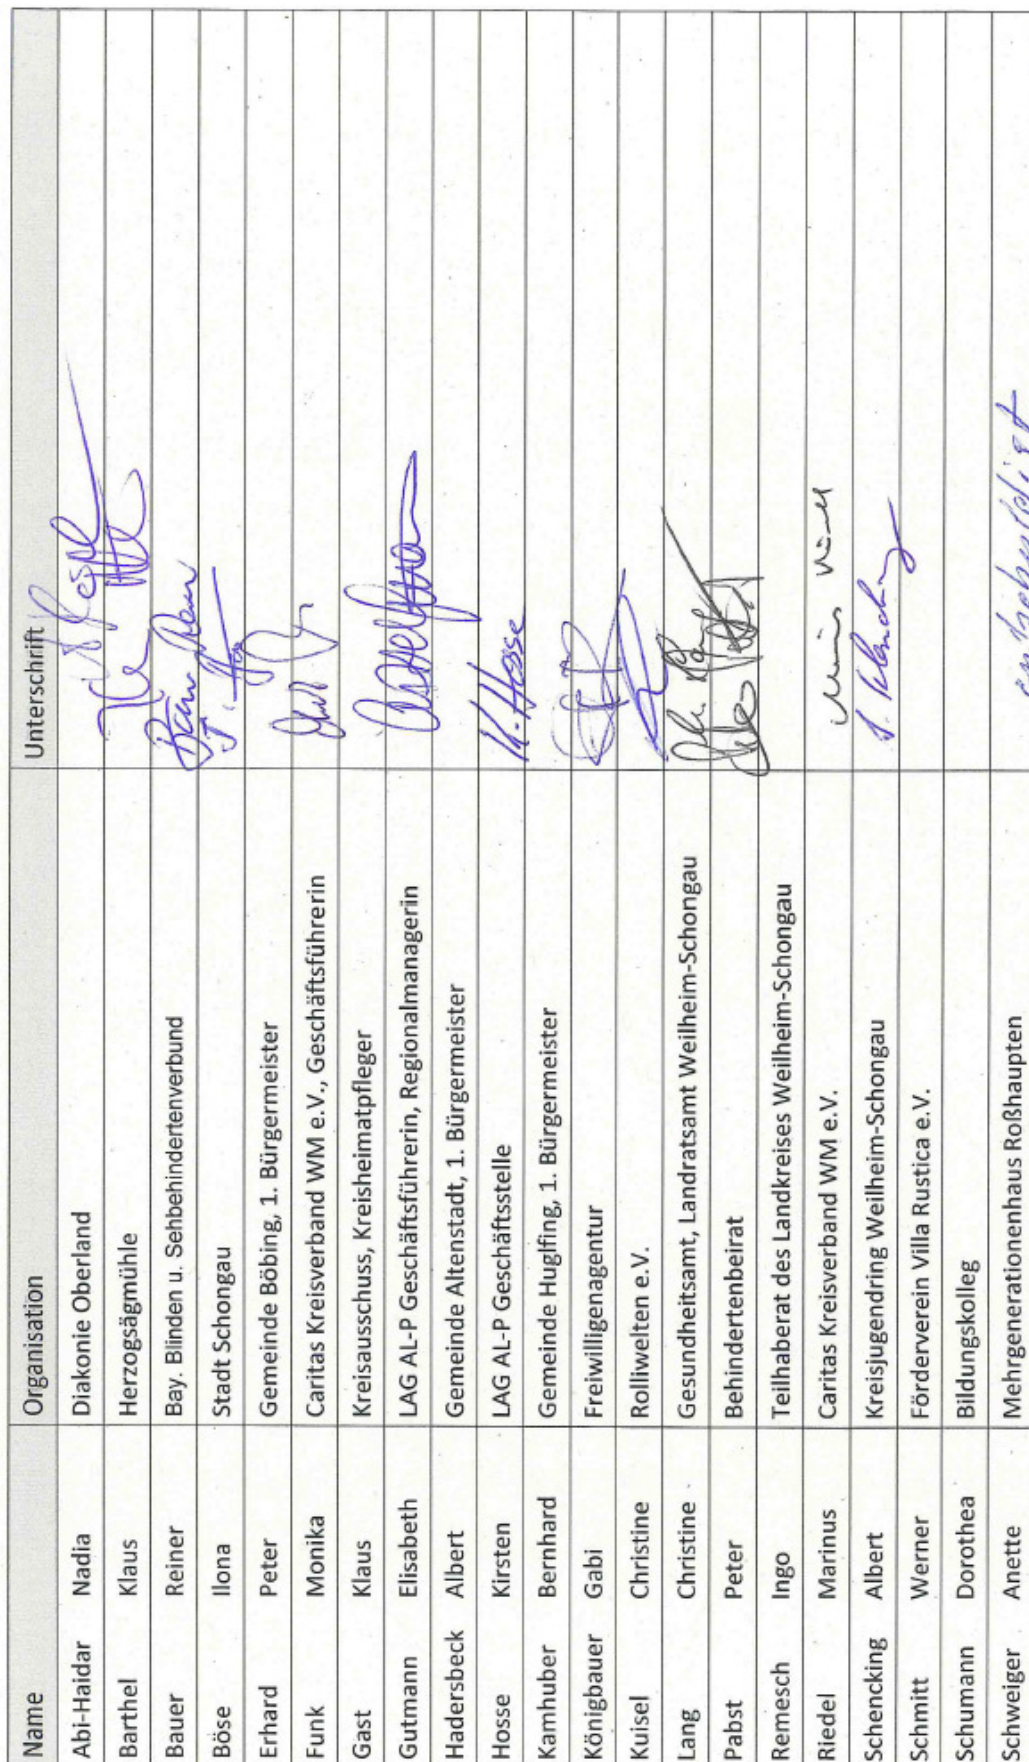 Name Organisation Unterschrift
Abi-Haidar Nadia Diakonie Oberland
Barthel Klaus Herzogsägmühle
Bauer Reiner Bay. Blinden u. Sehbehindertenverbund
Böse Ilona Stadt Schongau
Erhard Peter Gemeinde Böbing, 1. Bürgermeister
Funk Monika Caritas Kreisverband WM e.V., Geschäftsführerin
Gast Klaus Kreisausschuss, Kreisheimatpfleger
Gutmann Elisabeth LAG AL-P Geschäftsführerin, Regionalmanagerin
Hadersbeck Albert Gemeinde Altenstadt, 1. Bürgermeister
Hosse Kirsten LAG AL-P Geschäftsstelle K. Hosse
Kamhuber Bernhard Gemeinde Huglfing, 1. Bürgermeister
Königbauer Gabi Freiwilligenagentur
Kuisel Christine Rolliwelten e.V.
Lang Christine Gesundheitsamt, Landratsamt Weilheim-Schongau
Pabst Peter Behindertenbeirat
Remesch Ingo Teilhaberat des Landkreises Weilheim-Schongau
Riedel Marinus Caritas Kreisverband WM e.V.
Schencking Albert Kreisjugendring Weilheim-Schongau
Schmitt Werner Förderverein Villa Rustica e.V.
Schumann Dorothea Bildungskolleg
Schweiger Anette Mehrgenerationenhaus Roßhaupten entschuldigt